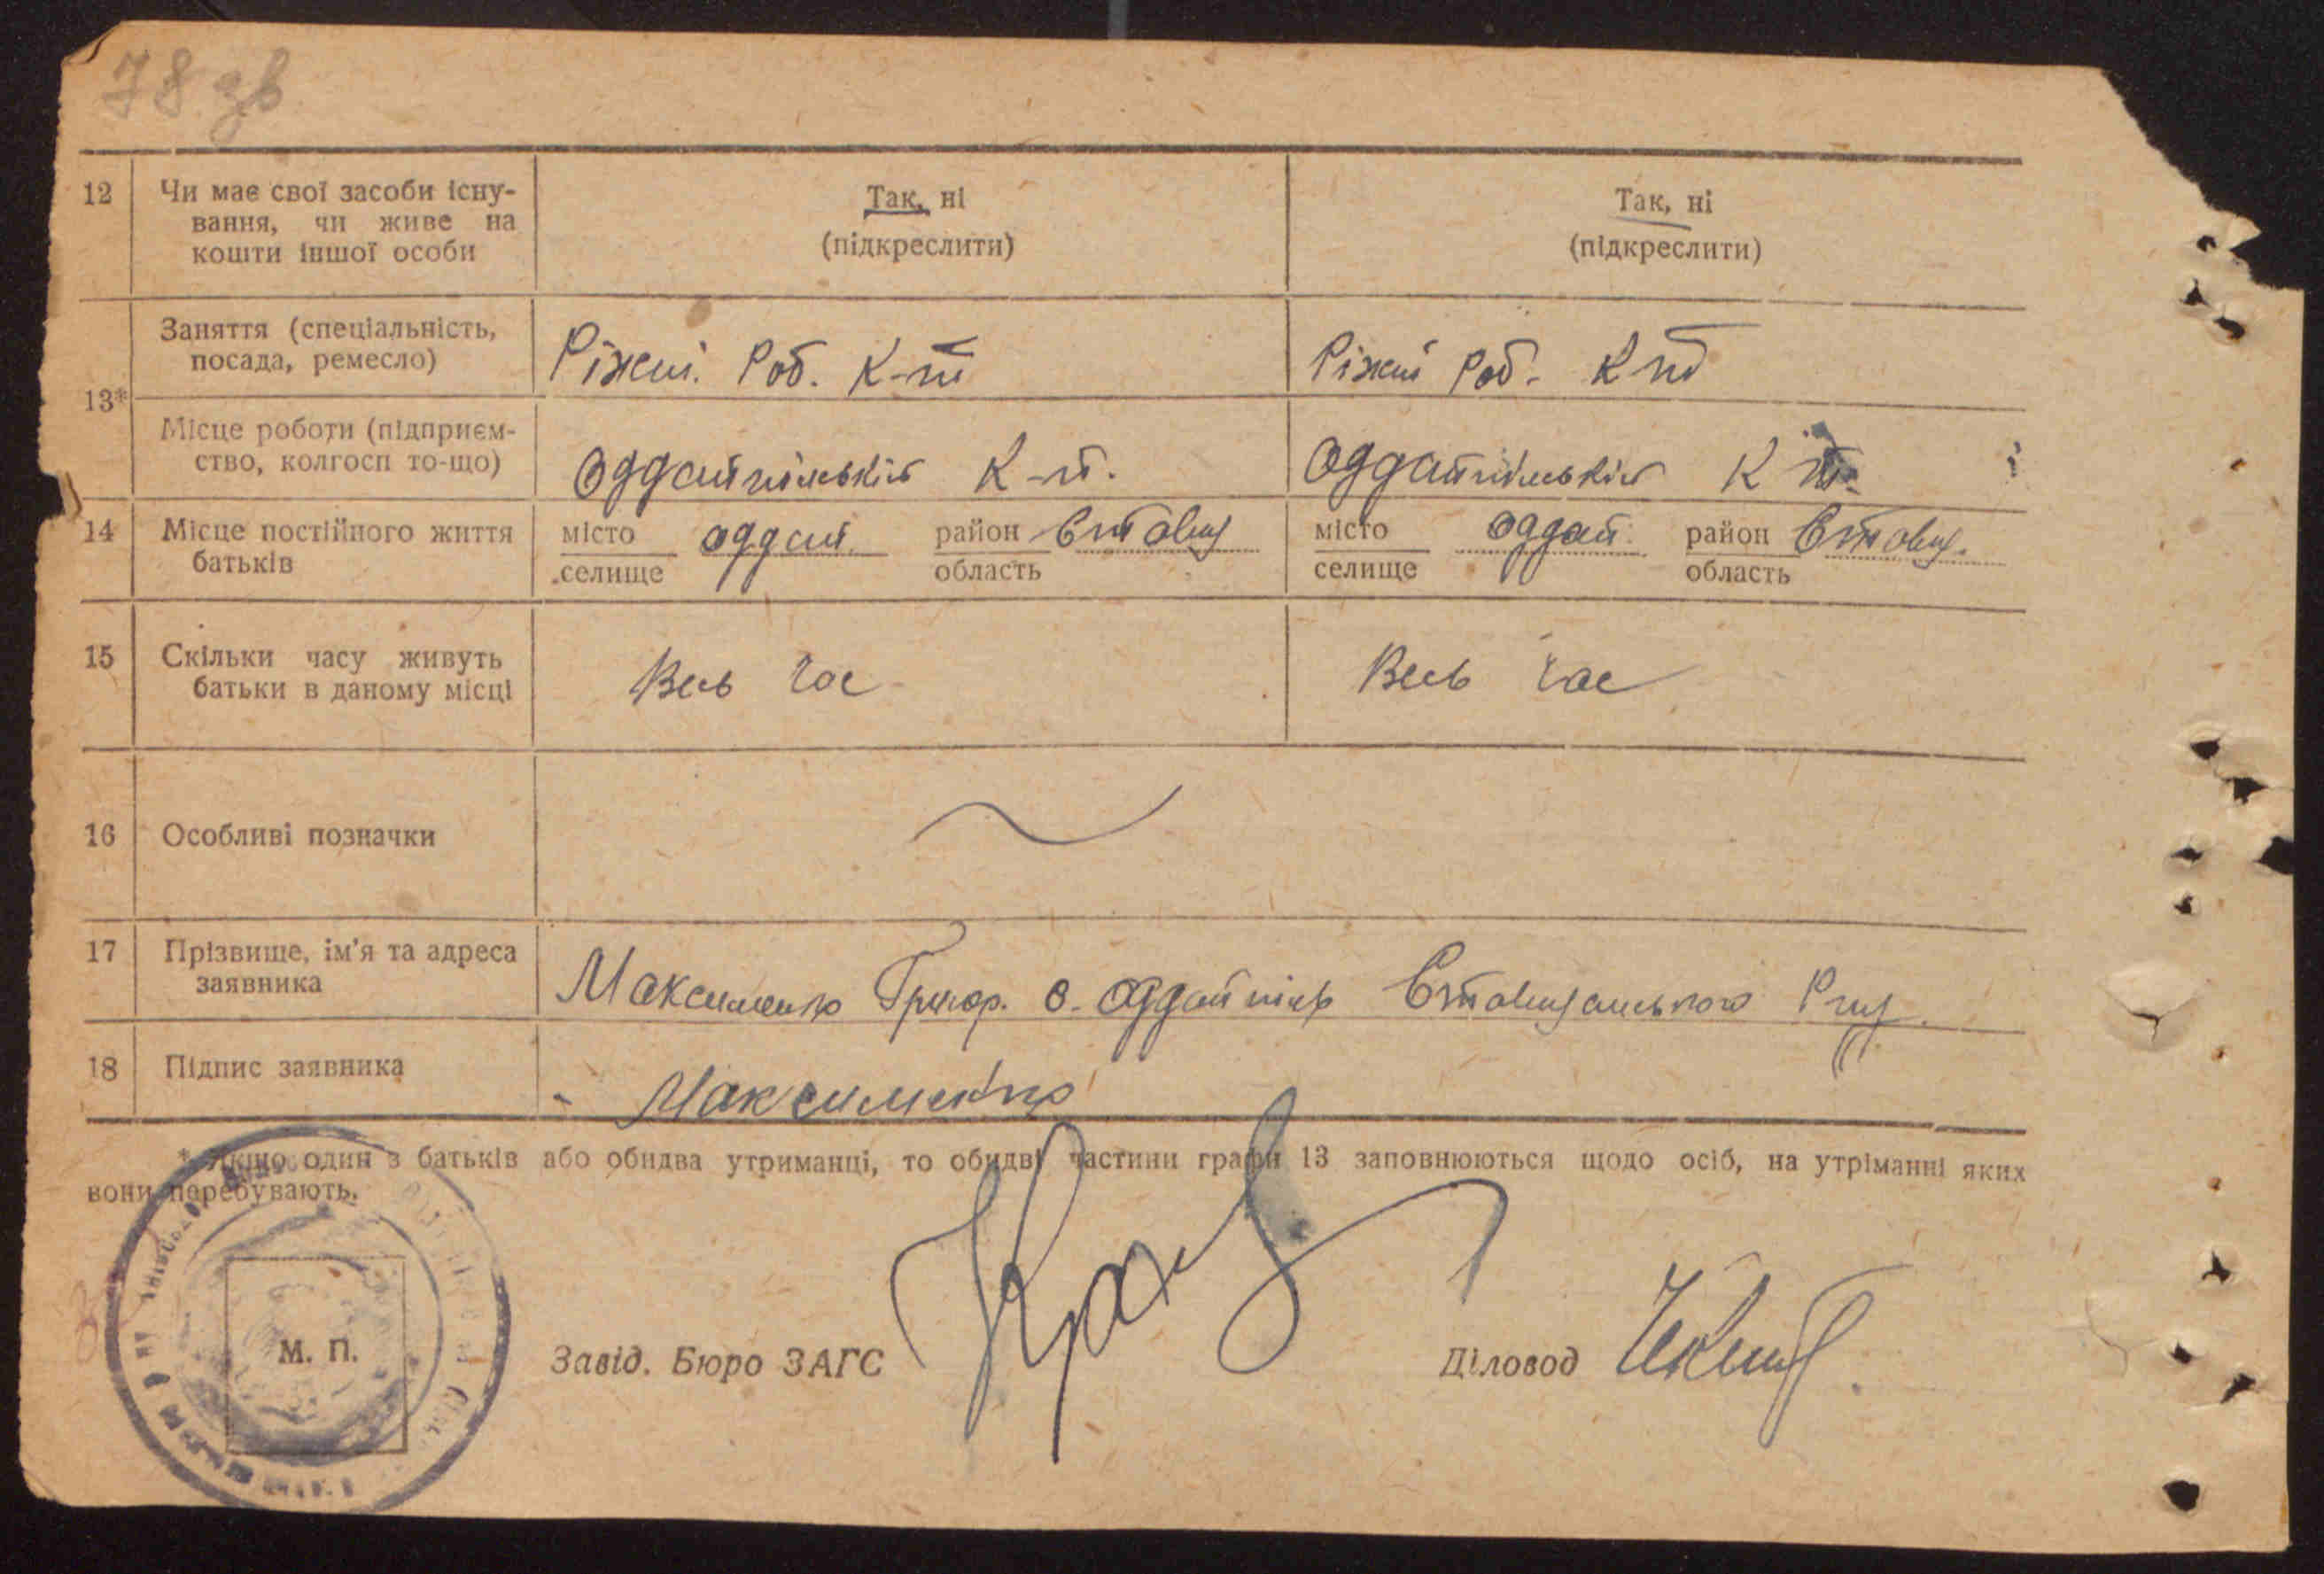 78 зв
12 Чи має свої засоби існу- Так, ні Так, ні
вання, чи живе на (підкреслити) (підкреслити)
кошти іншої особи
Заняття (спеціальність,
посада, ремесло) Ріжні. Роб. К-т Ріжні роб. К т
13*
Місце роботи (підприєм-
ство, колгосп то-що) К-т. К т.
14 Місце постійного життя місто оддай. район Ставищ місто оддай. район Ставищ.
батьків селище область селище область
15 Скільки часу живуть Весь час Весь час
батьки в даному місці
16 Особливі позначки
17 Прізвище, ім'я та адреса
заявника Максименко Григор. с. оддайпіль Ставищанського
18 Підпис заявника Максименко
* Якщо один з батьків або обидва утриманці, то обидві частини графи 13 заповнюються щодо осіб, на утріманні яких
вони перебувають.
М. П. Завід. Бюро ЗАГС Діловод